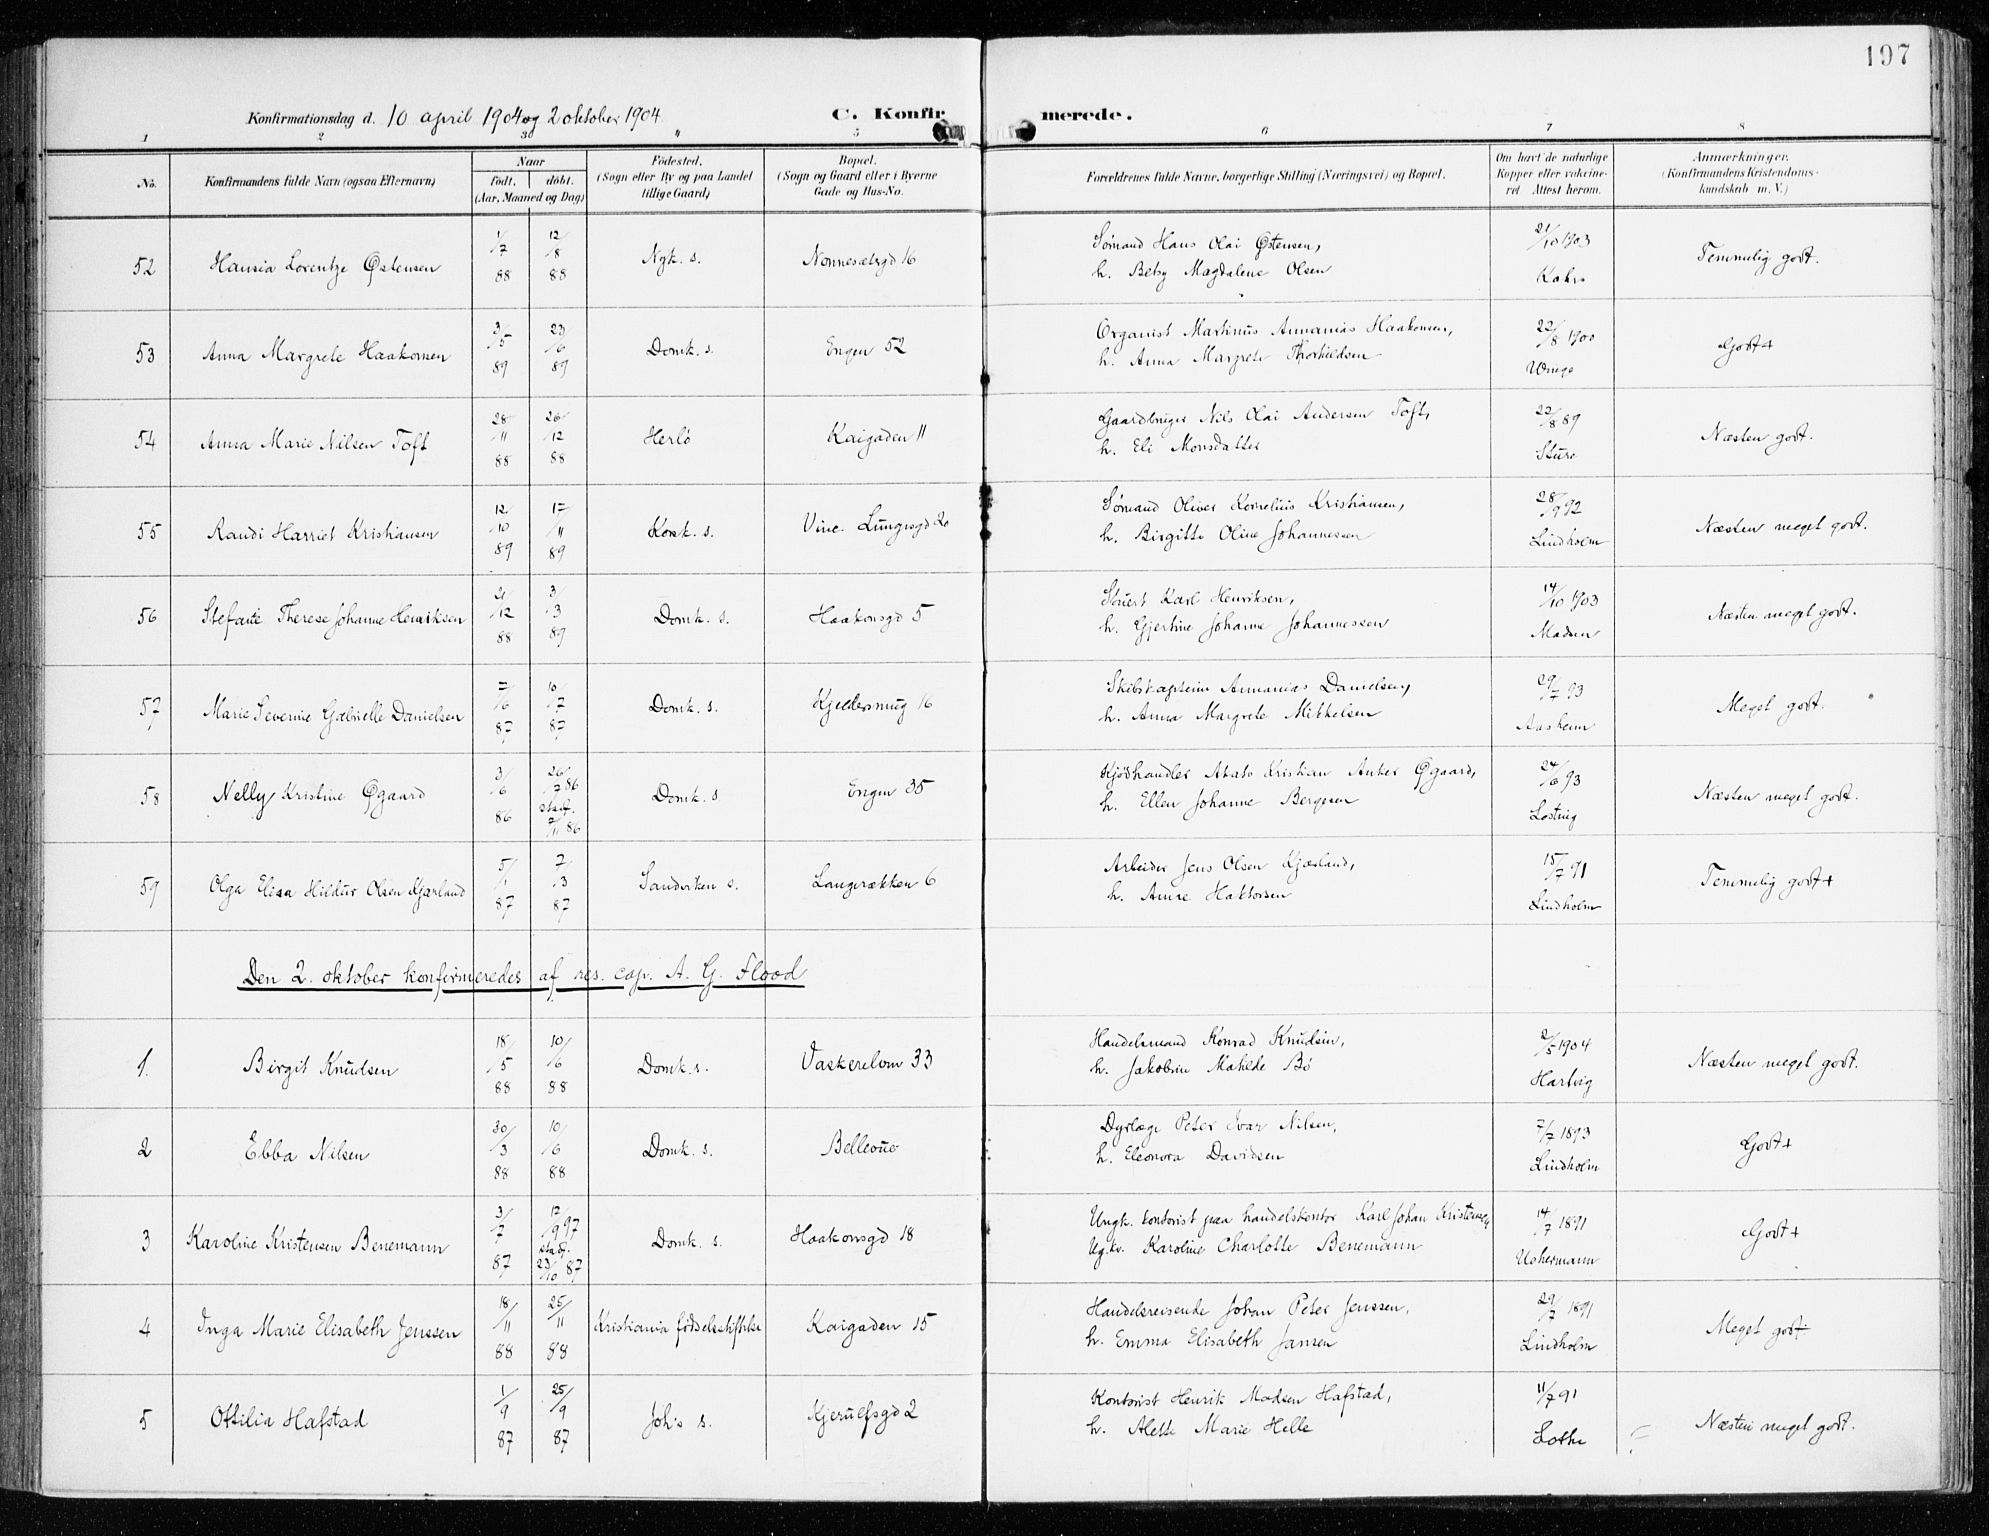 197
Konfirmationsdag d. 10 april 1904 og 2 oktober 1904
C. Konfirmerede.
1 2 3 4 5 6 7 8
No. Konfirmandens fulde Navn (ogsaa Efternavn) Naar født. døbt. (Aar, Maaned og Dag) Fødested. (Sogn eller By og paa Landet tillige Gaard) Bopæl. (Sogn og Gaard eller i Byerne Gade og Hus-No. Forældrenes fulde Navne, borgerlige Stilling (Næringsvei) og Bopæl. Om havt de naturlige Kopper eller vakcineret Attest herom. Anmærkninger. (Konfirmandens Kristendomskundskab m. V.)
52 Hansia Lorentze Østensen 1/7 88 12/8 88 Nyk. s. Nonnesætergd 16 Sømand Hans Olai Østensen, h. Betsy Magdalene Olsen 21/10 1903 Kahrs Temmelig godt.
53 Anna Margrete Haakonsen 3/5 89 23/6 89 Domk. s. Engen 52 Organist Martinus Annanias Haakonsen, h. Anna Margrete Thorkildsen 22/8 1900 Godt+
54 Anna Marie Nilsen Toft 28/11 88 26/12 88 Herlø Kaigaden 11 Gaardbruger Nils Olai Andersen Toft, h. Eli Monsdatter 22/8 89 Sture Næsten godt.
55 Randi Harriet Kristiansen 12/10 89 17/11 89 Korsk. s. Vinc. Lungesgd 20 Sømand Oliver Kornelius Kristiansen, h. Birgitte Oline Johannessen 28/9 92 Lindholm Næsten meget godt.
56 Stefanie Therese Johanne Henriksen 21/12 88 3/3 89 Domk. s. Haakonsgd 5 Stuert Karl Henriksen, h. Gjertine Johanne Johannessen 14/10 1903 Madsen Næsten meget godt.
57 Marie Severine Gabrielle Danielsen 7/6 87 10/7 87 Domk. s. Kjeldersmug 16 Skibskaptein Annanias Danielsen, h. Anna Margrete Mikkelsen 29/7 93 Aasheim Meget godt.
58 Nelly Kristine Øgaard 3/6 86 26/7 86 stadf. 7/11 86 Domk. s. Engen 35 Kjøbhandler Kristian Anker Øgaard, h. Ellen Johanne Bergesen 24/6 93 Næsten meget godt.
59 Olga Elisa Hildur Olsen Kjærland 5/1 87 7/3 87 Sandviken s. Langerækken 6 Arbeider Jens Olsen Kjærland, h. Anne Haktorsen 15/7 91 Lindholm Temmelig godt+
Den 2. oktober konfirmeredes af res. cap. A. G. Flood
1. Birgit Knudsen 18/5 88 10/6 88 Domk. s. Vaskerelven 33 Handelsmand Konrad Knudsen, h. Jakobine Mathilde Bø 2/5 1904 Hartvig Næsten meget godt.
2 Ebba Nilsen 30/3 88 10/6 88 Domk. s. Bellevue Dyrlæge Peter Ivar Nilsen, h. Eleonora Davidsen 7/7 1893 Lindholm Godt+
3 Karoline Kristensen Benemann 3/7 87 17/9 97 stadf. 23/10 87 Domk. s. Haakonsgd 18 Ungk. kontorist paa handelskontor Karl Johan Kristensen Ug.kv. Karoline Charlotte Benemann 14/7 1891 Uchermann Godt+
4 Inga Marie Elisabeth Jenssen 18/11 88 25/11 88 Kristiania fødselsstiftelse Kaigaden 15 Handelsreisende Johan Peter Jenssen, h. Emma Elisabeth Jansen 29/7 1891 Lindholm Meget godt
5 Ottilia Hafstad 1/9 87 25/9 87 Joh's s. Kjerulfsgd 2 Kontorist Henrik Madsen Hafstad, h. Alette Marie Helle 11/7 91 Lothe Næsten meget godt.